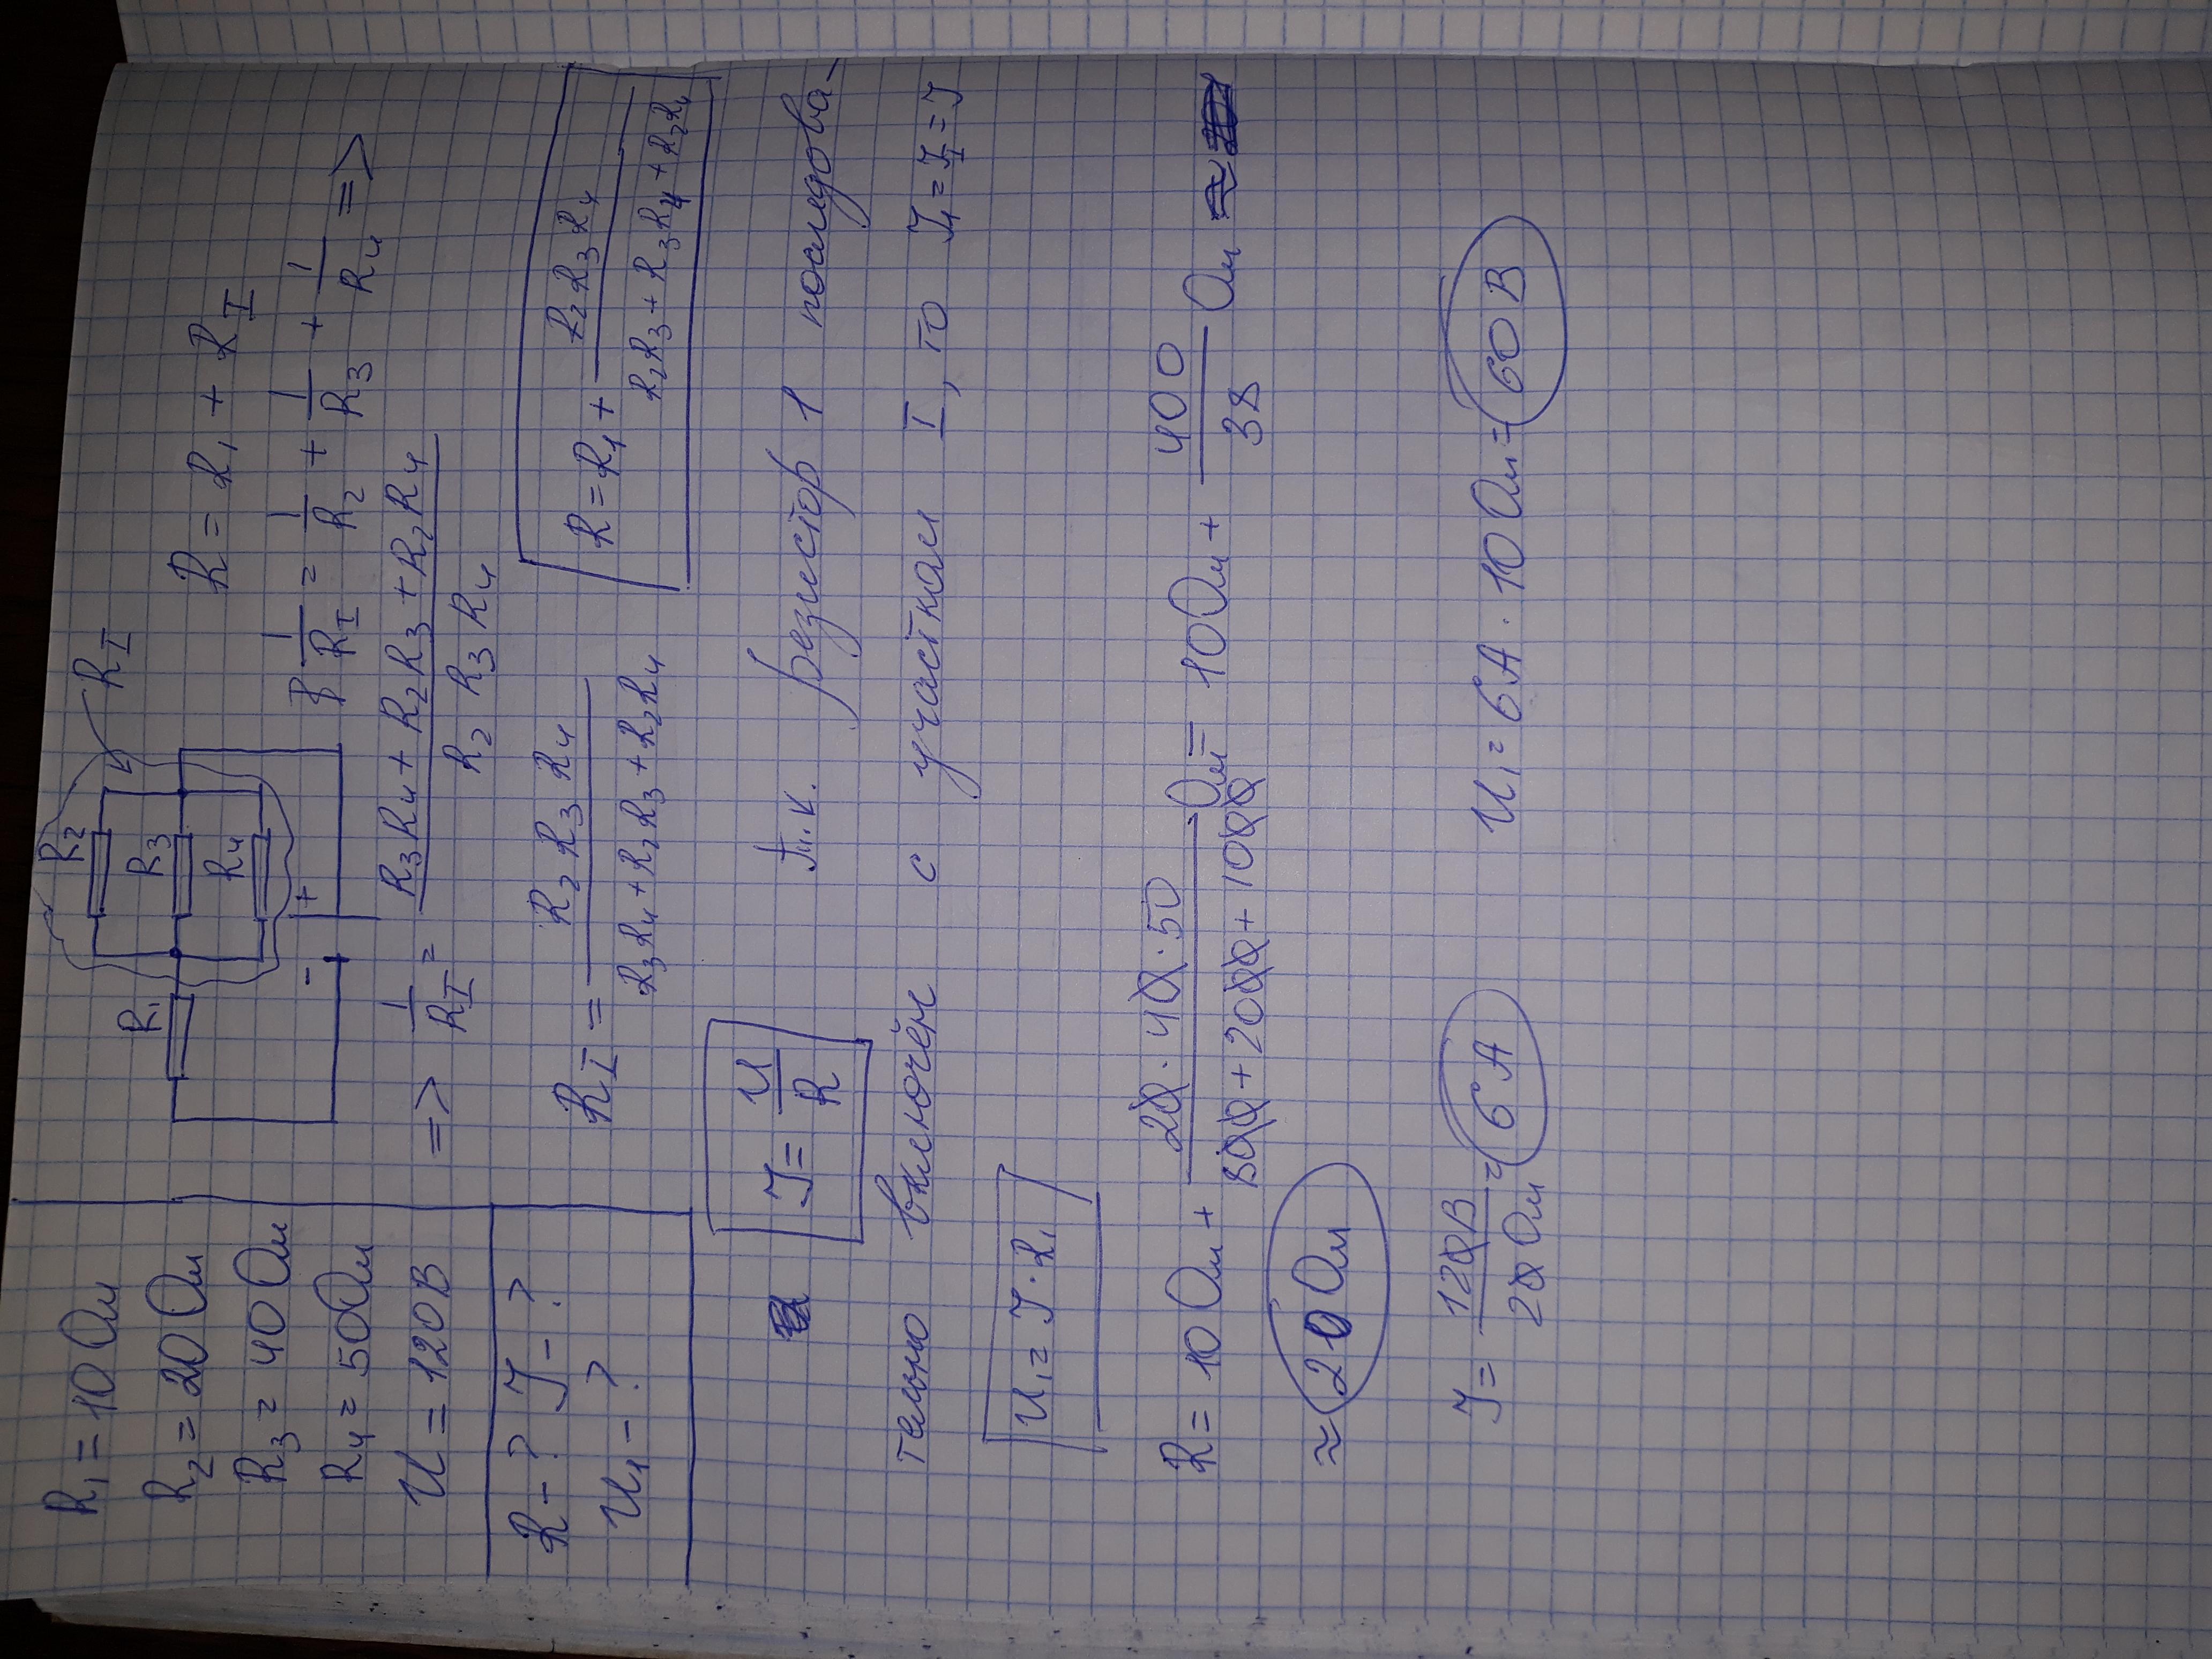 R₁ = 10 Ом
R₂ = 20 Ом
R₃ = 40 Ом
R₄ = 50 Ом
U = 120 В
R - ? J - ?
U₁ - ?
R₁ R₂ R₃ R₄ - + R_I
R = R₁ + R_I
1/R_I = 1/R₂ + 1/R₃ + 1/R₄ =>
=> 1/R_I = (R₃R₄ + R₂R₃ + R₂R₄)/(R₂R₃R₄)
R_I = (R₂R₃R₄)/(R₃R₄ + R₂R₃ + R₂R₄)
R = R₁ + (R₂R₃R₄)/(R₂R₃ + R₃R₄ + R₂R₄)
J = U/R
Т.к. резистор 1 последова-
тельно включён с участком I, то J₁ = J_I = J
U₁ = J · R₁
R = 10 Ом + (20 · 40 · 50)/(800 + 2000 + 1000) Ом = 10 Ом + 400/38 Ом ≈
≈ 20 Ом
J = 120 В/20 Ом = 6 А
U₁ = 6 А · 10 Ом = 60 В